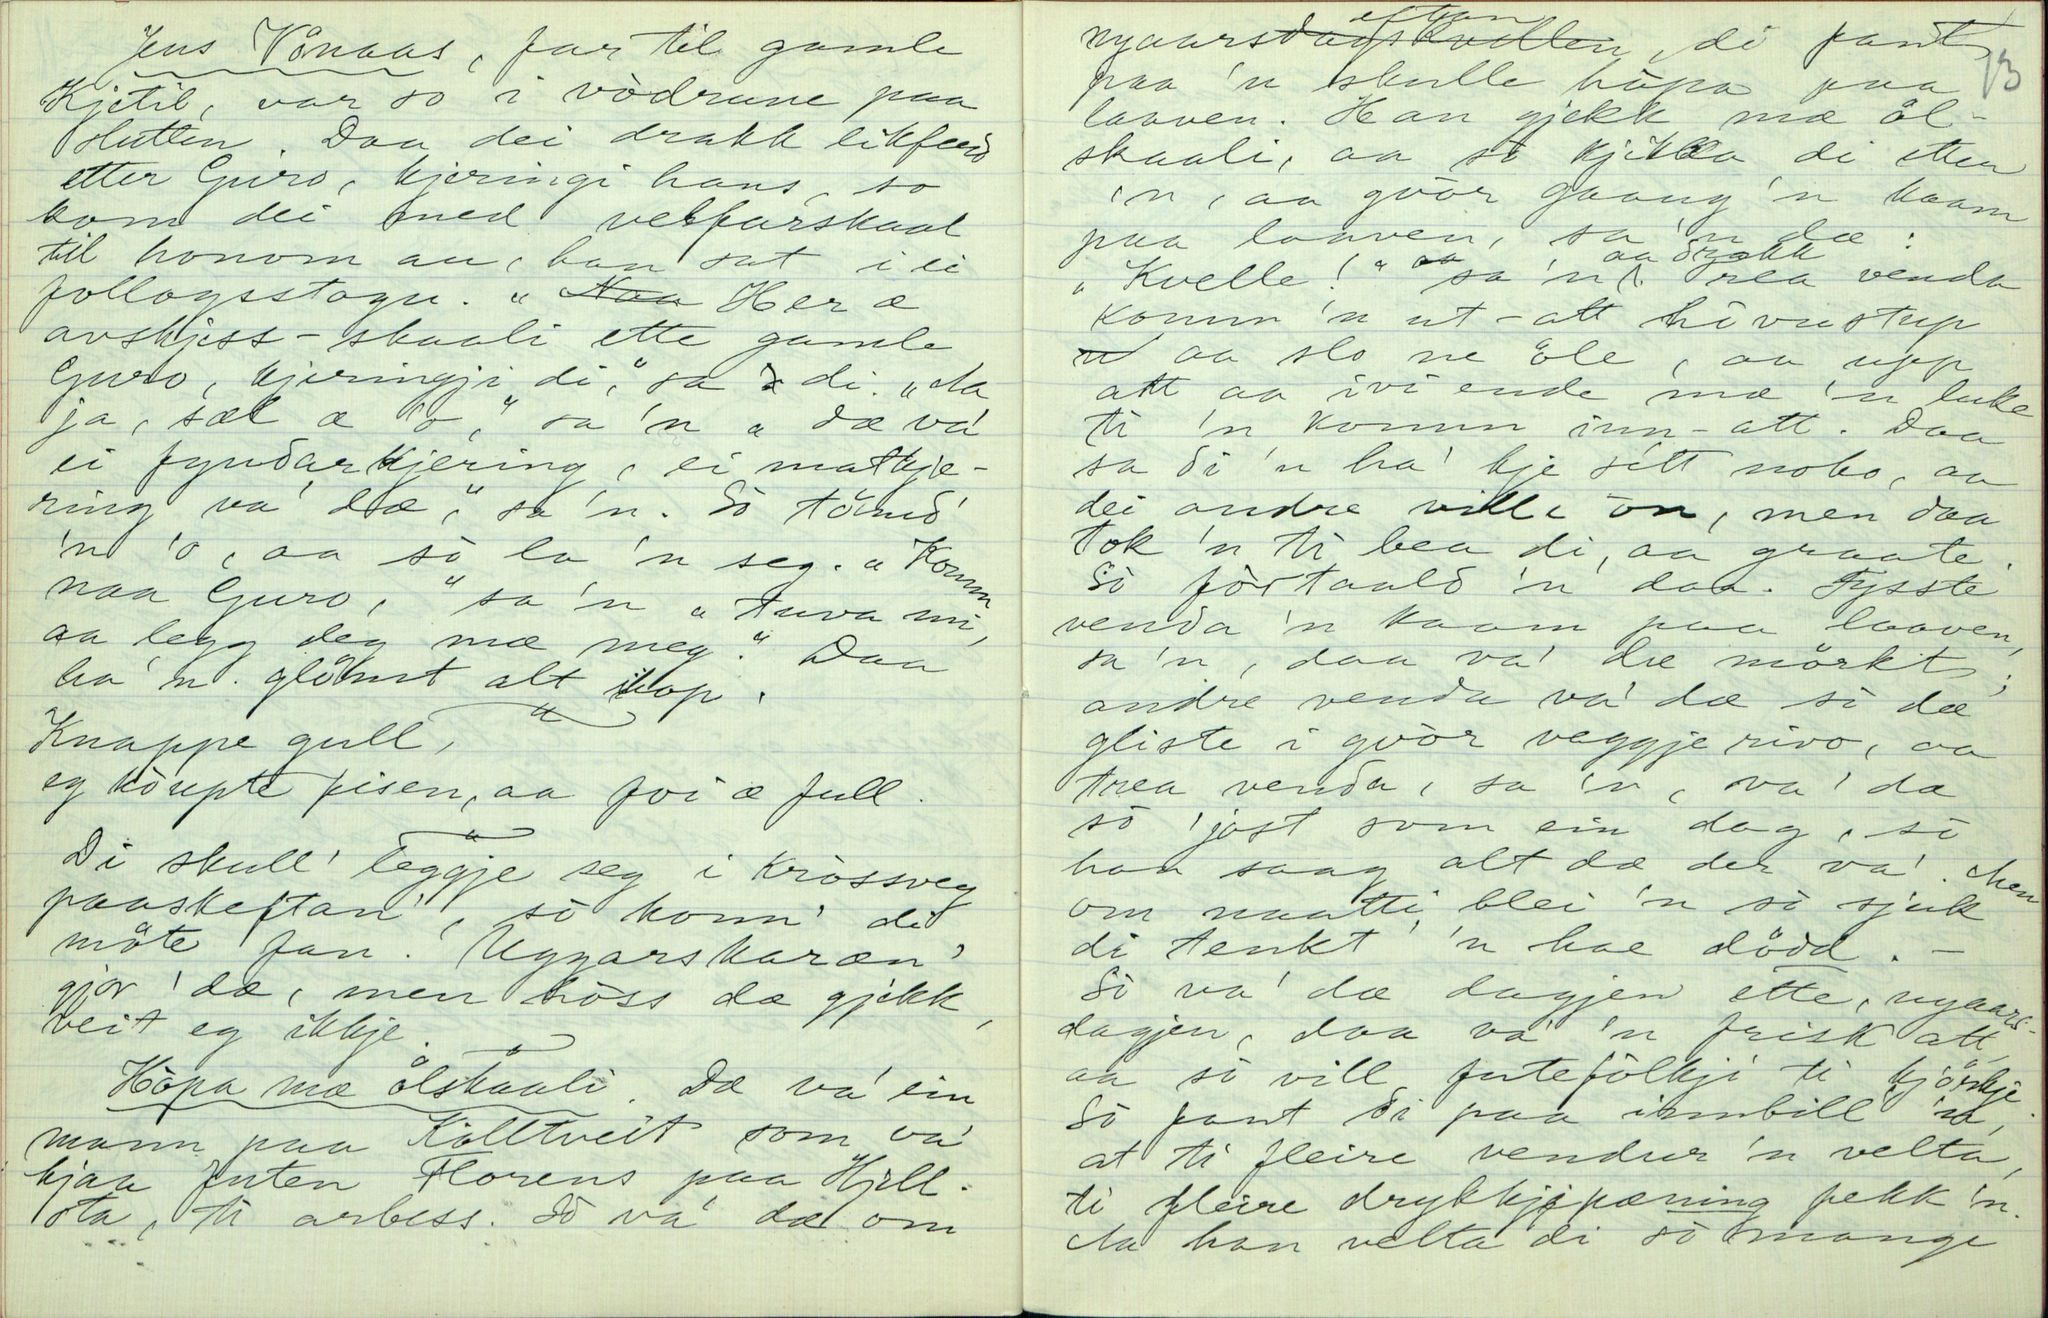 Jens Vònaas, far til gamle
Kjètil, var so i vòdrune paa
slutten. Daa dei drakk likferd
etter Guro, kjeringi hans, so
kom dei med velfarskaal
til honom au, han sat i ei
follogsstogu. " Naa Her æ
avskjess-skaali ette gamle
Guro, kjeringji di," sa di. "Aa
ja, sæl æ 'o," sa 'n "dæ va'
ei fyndarkjering, ei matkje-
ring va' dæ," sa 'n. Sò tömd'
'n 'o, aa sò la 'n seg. "Komm
naa Guro," sa 'n "tuva mi,
aa legg deg mæ meg." Daa
ha 'n glömt alt ihop.
Knappe gull,
eg kòupte fisen, aa foi æ full.
Di skull' leggje seg i kròssveg
paaskeftan', sò komm' di
möte fan. Uggarskaræn'
gjor' dæ, men hòss dæ gjekk,
veit eg ikkje.
Hòpa mæ ölskaali. Dæ va' ein
mann paa Kolltveit som va'
hjaa Futen Florens paa Hjell-
sta, ti arbess. Sò va' dæ om
13
nyaarsdagskvellen eftan, di fant
paa 'n skulle hòpa paa
laaven. Han gjekk mæ öl-
skaali, aa sò kjikka di etter
'n, aa gvòr gaang 'n kaam
paa laaven, sa 'n dæ:
"Kvelle!" aa sa 'n aa drakk. Trea venda
komm 'n ut-att hivustup
aa slo ne öle, aa upp
att aa ivi ende mæ 'n luke
ti 'n komm inn-att. Daa
sa di 'n ha' kje sitt noko, aa
dei andre ville òn, men daa
tok 'n ti bea di, aa graate.
Sò fòrtaald 'n daa. Fysste
venda 'n kaam paa laaven,
sa 'n, daa va' dæ mörkt;
andre venda va' dæ sò dæ
gliste i gvòr veggje rivo, aa
trea venda, sa 'n, va' dæ
sò 'jost som ein dag, sò
han saag alt dæ der va'. Men
om naatti blei 'n sò sjuk
di tenkt' 'n hae dödd. –
Sò va' dæ dagjen ette, nyaars-
dagjen, daa va 'n frisk att,
aa sò vill futefòlkji ti kjörkje.
Sò fant di paa innbill 'n,
at ti fleire vendur 'n velta,
ti fleire drykkjepæning fekk 'n.
Aa han velta di sò mange